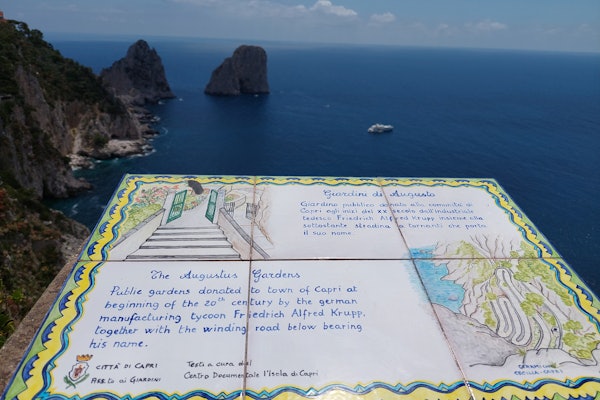 Giardini di Augusto
Giardino pubblico donato alla comunità di
Capri agli inizi del XX secolo dall'industriale
tedesco Friedrich Alfred Krupp insieme alla
sottostante stradina a tornanti che porta
il suo nome.
The Augustus Gardens
Public gardens donated to town of Capri at
beginning of the 20th century by the german
manufacturing tycoon Friedrich Alfred Krupp,
together with the winding road below bearing
his name.
CITTÀ DI CAPRI
Ass.to ai Giardini
Testi a cura del
Centro Documentale l'Isola di Capri
CECILIA-CAPRI